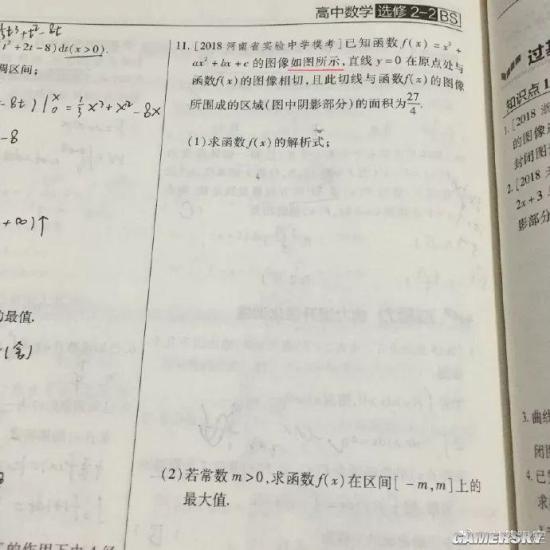 高中数学 选修2-2 BS
t²+2t-8)dt(x>0).
调区间;
-8t)|₀ˣ=⅓x³+x²-8x
-8
+∞)↑
的最值.
11. [2018河南省实验中学模考]已知函数f(x)=x³+
ax²+bx+c的图像如图所示,直线y=0在原点处与
函数f(x)的图像相切,且此切线与函数f(x)的图像
所围成的区域(图中阴影部分)的面积为27/4.
(1)求函数f(x)的解析式;
(2)若常数m>0,求函数f(x)在区间[-m,m]上的
最大值.
过
知识点1
1. [2018
的图像
封闭图
2. [2018
2x+3
影部分
3. 曲线
闭图
4. 已
求